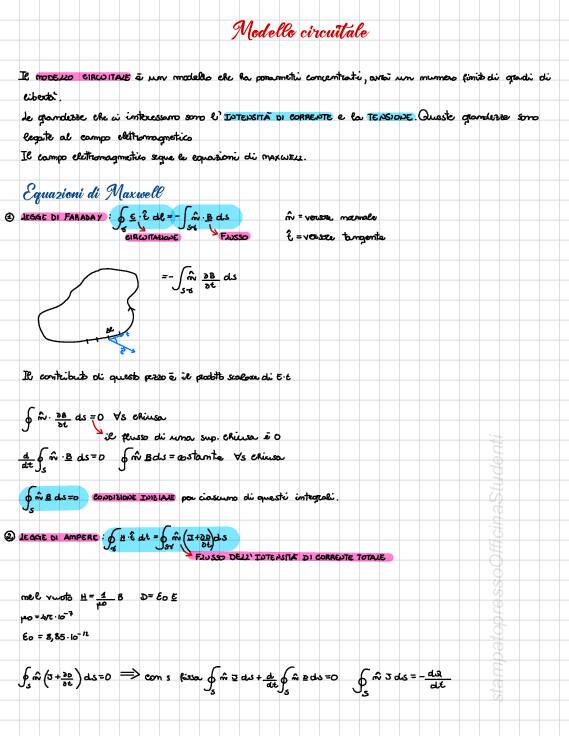 Modello circuitale
Il MODELLO CIRCUITALE è un modello che ha parametri concentrati, avrai un numero finito di gradi di
libertà.
Le grandezze che ci interessano sono l'INTENSITÀ DI CORRENTE e la TENSIONE. Queste grandezze sono
legate al campo elettromagnetico
Il campo elettromagnetico segue le equazioni di MAXWELL.
Equazioni di Maxwell
① LEGGE DI FARADAY: ∮_γ E · t̂ dl = - ∫_Sγ n̂ · B ds n̂ = versore normale
CIRCUITAZIONE FLUSSO t̂ = versore tangente
= - ∫_Sγ n̂ ∂B/∂t ds
Il contributo di questo pezzo è il prodotto scalare di E·t
∮ n̂ · ∂B/∂t ds = 0 ∀s chiusa
il flusso di una sup. chiusa è 0
d/dt ∮_S n̂ · B ds = 0 ∮ n̂ B ds = costante ∀s chiusa
∮_S n̂ B ds = 0 CONDIZIONE INIZIALE per ciascuno di questi integrali.
② LEGGE DI AMPERE: ∮_γ H · t̂ dt = ∮_Sγ n̂ (J + ∂D/∂t) ds
FLUSSO DELL'INTENSITÀ DI CORRENTE TOTALE
nel vuoto H = 1/μ0 B D = ε0 E
μ0 = 4π·10⁻⁷
ε0 = 8,85·10⁻¹²
∮_S n̂ (J + ∂D/∂t) ds = 0 ⟹ con s fissa ∮_S n̂ J ds + d/dt ∮_S n̂ D ds = 0 ∮_S n̂ J ds = - dQ/dt
stampatopressoOfficinaStudenti